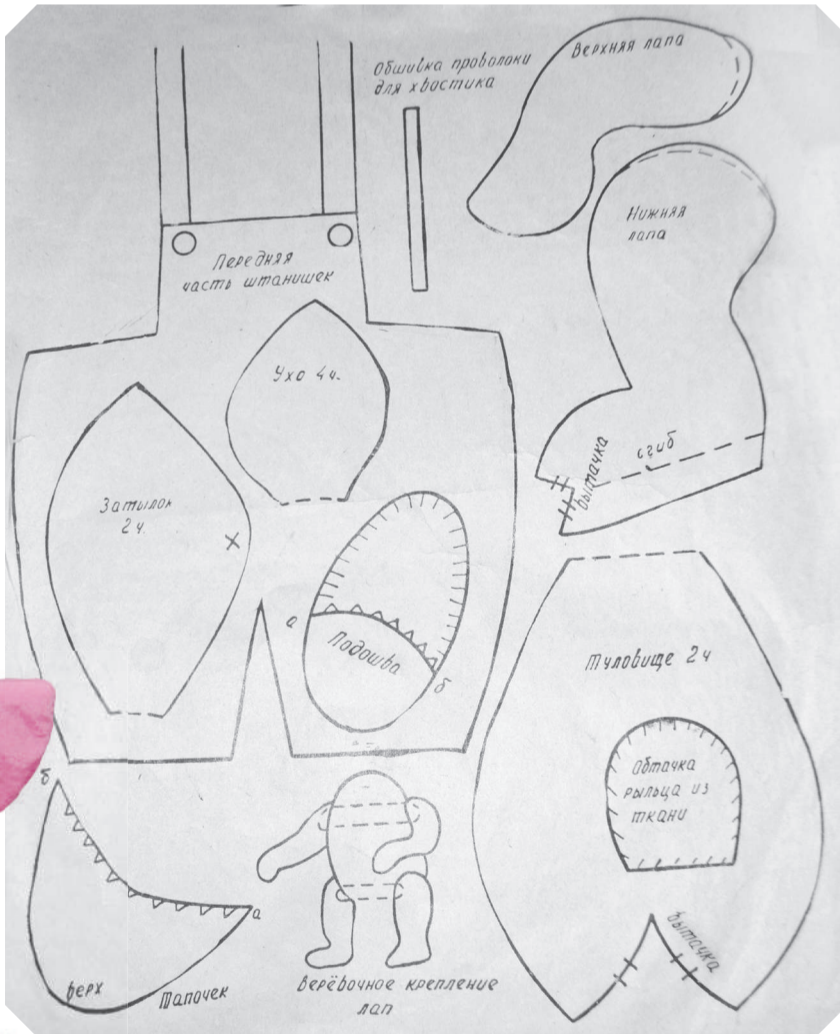 Обшивка проволоки
для хвостика
Верхняя лапа
Нижняя
лапа
Передняя
часть штанишек
Ухо 4ч.
Затылок
2 ч.
вытачка
сгиб
а
Подошва
б
Туловище 2ч
Обтачка
рыльца из
ткани
вытачка
б
а
верх
тапочек
Верёвочное крепление
лап